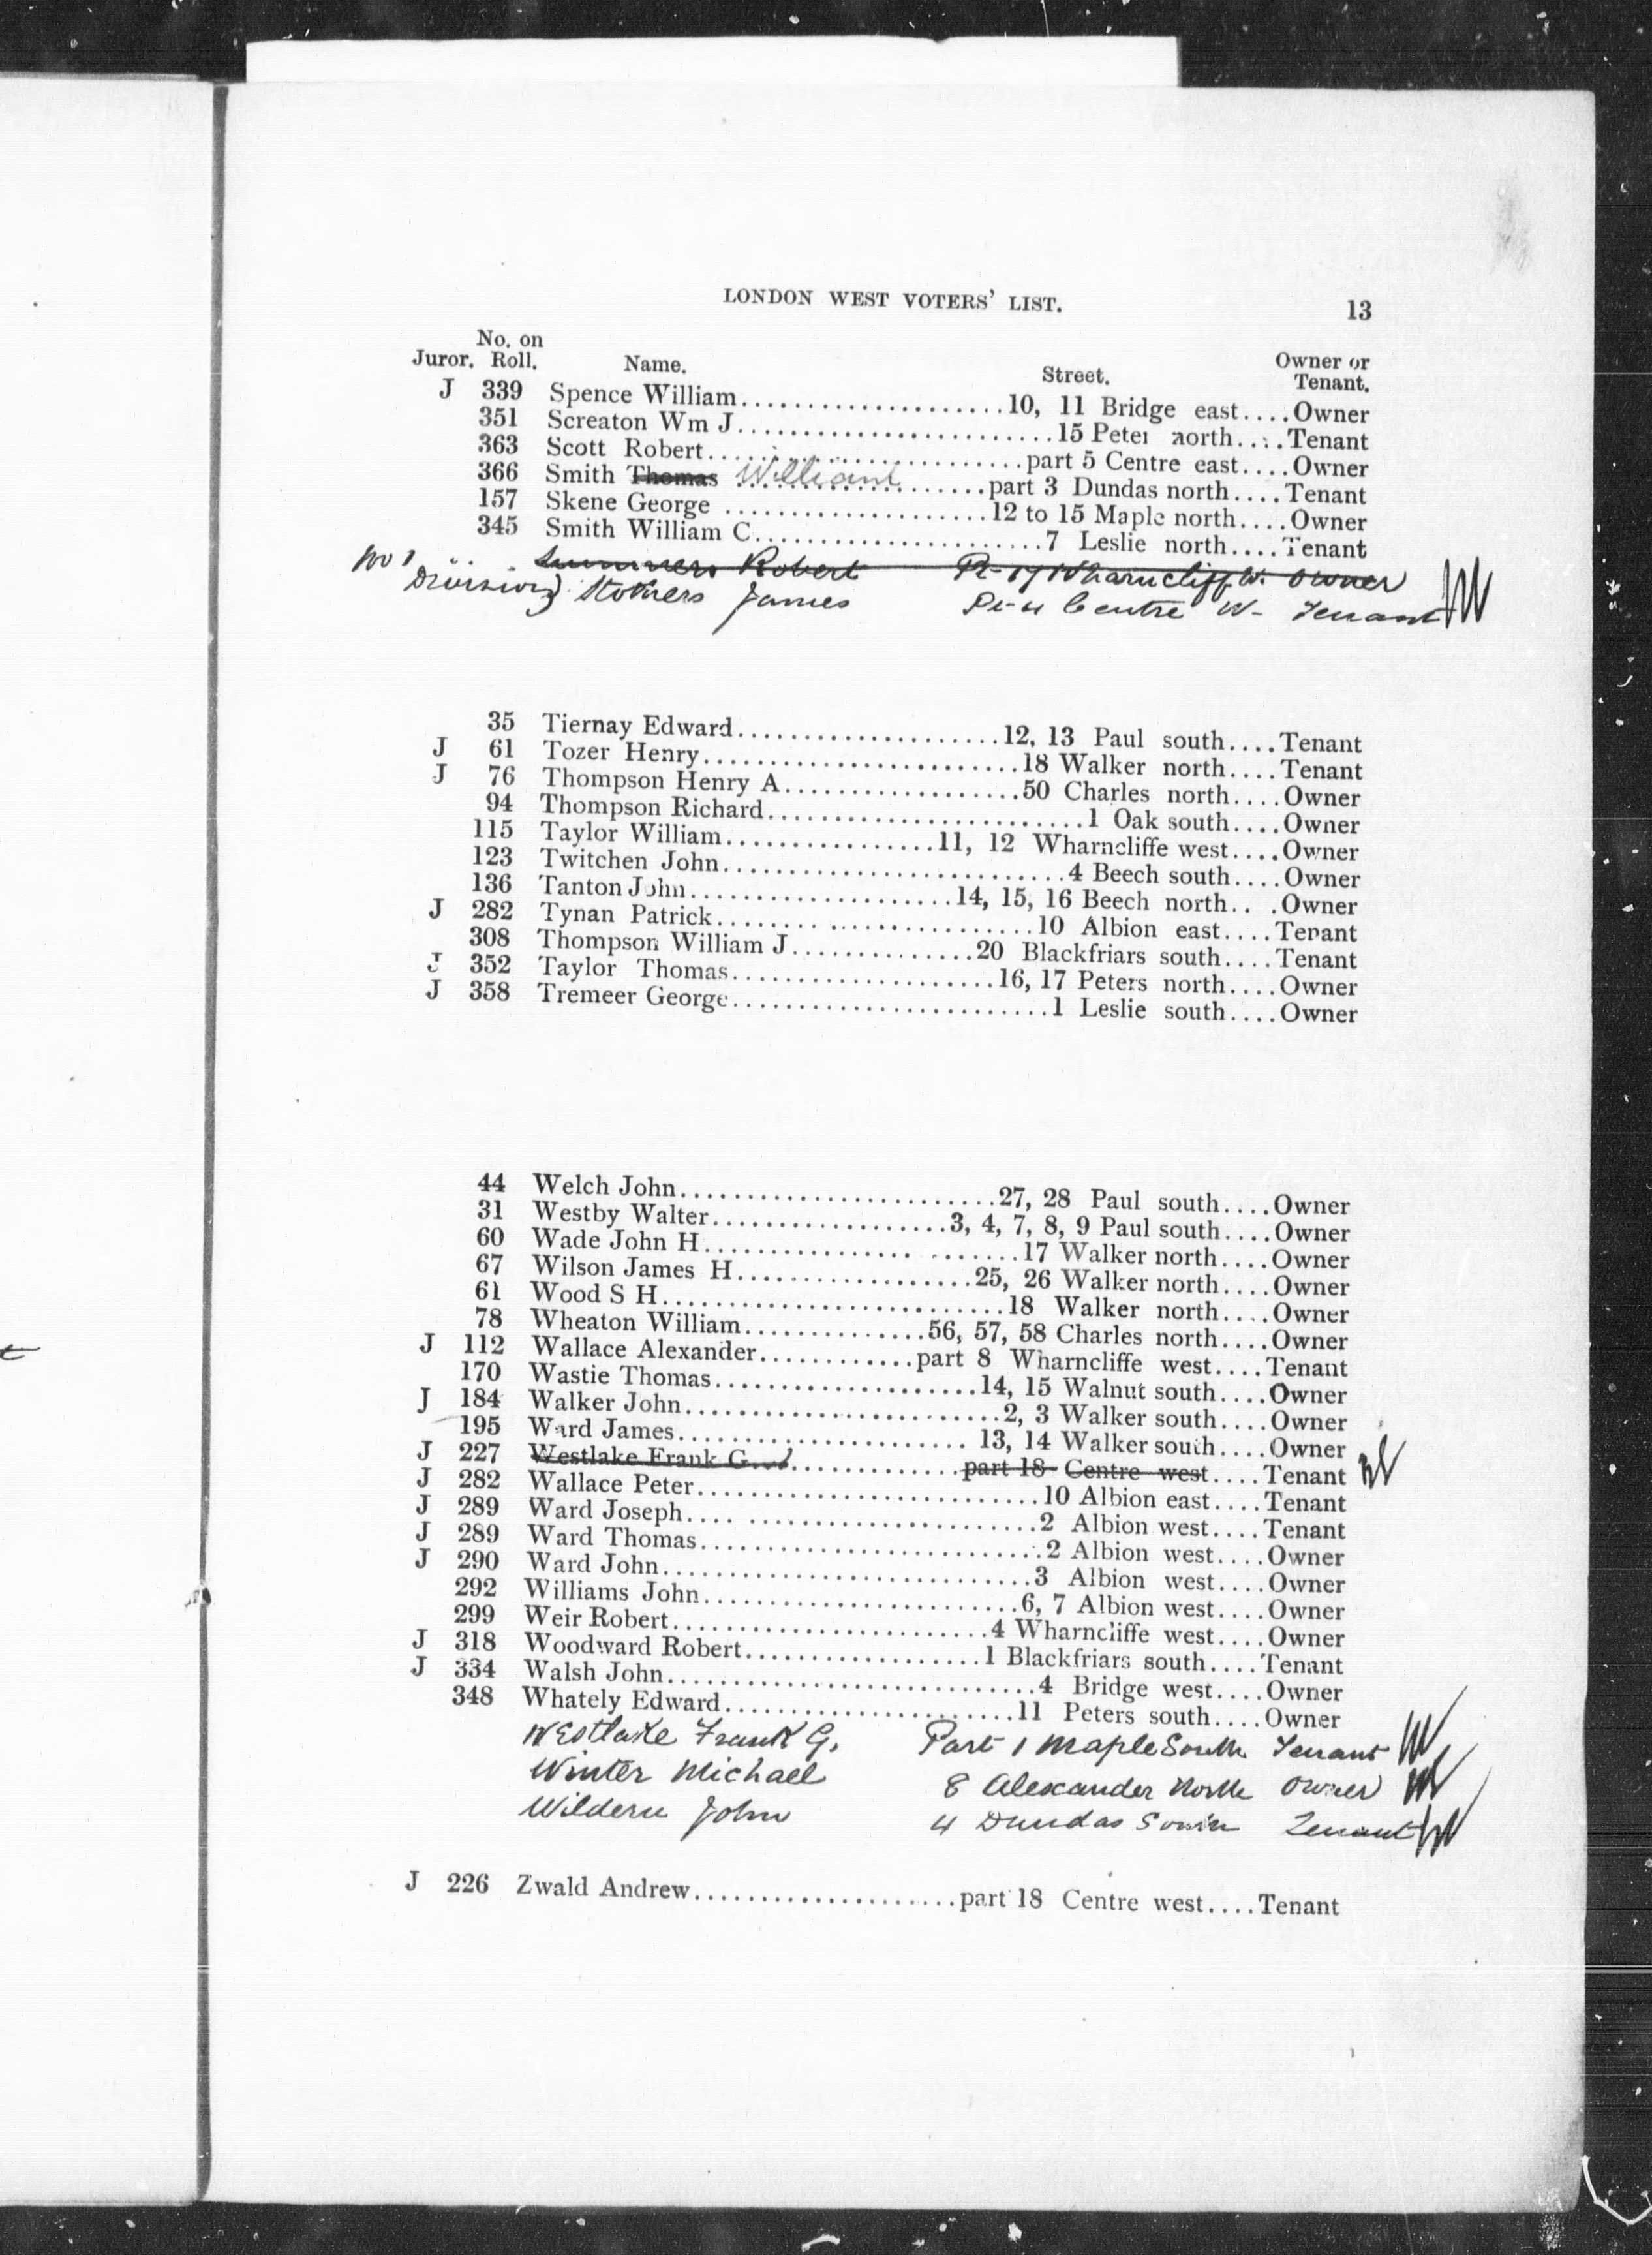 LONDON WEST VOTERS' LIST. 13
No. on
Juror. Roll. Name. Street. Owner or Tenant.
J 339 Spence William.....................10, 11 Bridge east....Owner
351 Screaton Wm J.........................15 Peter north....Tenant
363 Scott Robert.........................part 5 Centre east....Owner
366 Smith Thomas William...................part 3 Dundas north....Tenant
157 Skene George ....................12 to 15 Maple north....Owner
345 Smith William C.......................7 Leslie north....Tenant
No 1 Summers Robert Pt 17 Wharncliff W. Owner
Division} Stothers James Pt 4 Centre W- Tenant
35 Tiernay Edward....................12, 13 Paul south....Tenant
J 61 Tozer Henry.........................18 Walker north....Tenant
J 76 Thompson Henry A...................50 Charles north....Owner
94 Thompson Richard.........................1 Oak south....Owner
115 Taylor William.................11, 12 Wharncliffe west....Owner
123 Twitchen John...........................4 Beech south....Owner
136 Tanton John.....................14, 15, 16 Beech north.. .Owner
J 282 Tynan Patrick.........................10 Albion east....Tenant
308 Thompson William J...............20 Blackfriars south....Tenant
J 352 Taylor Thomas.....................16, 17 Peters north....Owner
J 358 Tremeer George.........................1 Leslie south....Owner
44 Welch John.........................27, 28 Paul south....Owner
31 Westby Walter...................3, 4, 7, 8, 9 Paul south....Owner
60 Wade John H........................17 Walker north....Owner
67 Wilson James H...................25, 26 Walker north....Owner
61 Wood S H...........................18 Walker north....Owner
78 Wheaton William...............56, 57, 58 Charles north....Owner
J 112 Wallace Alexander............part 8 Wharncliffe west....Tenant
170 Wastie Thomas.....................14, 15 Walnut south....Owner
J 184 Walker John.........................2, 3 Walker south....Owner
195 Ward James...................... 13, 14 Walker south....Owner
J 227 Westlake Frank G................part 18 Centre west....Tenant
J 282 Wallace Peter...........................10 Albion east....Tenant
J 289 Ward Joseph.... ......................2 Albion west....Tenant
J 289 Ward Thomas...........................2 Albion west....Owner
J 290 Ward John.............................3 Albion west....Owner
292 Williams John.........................6, 7 Albion west....Owner
299 Weir Robert.........................4 Wharncliffe west....Owner
J 318 Woodward Robert...................1 Blackfriars south....Tenant
J 334 Walsh John.............................4 Bridge west....Owner
348 Whately Edward.......................11 Peters south....Owner
Westlake Frank G. Part 1 Maple South Tenant
Winter Michael 8 Alexander North Owner
Wildern John 4 Dundas South Tenant
J 226 Zwald Andrew.....................part 18 Centre west....Tenant